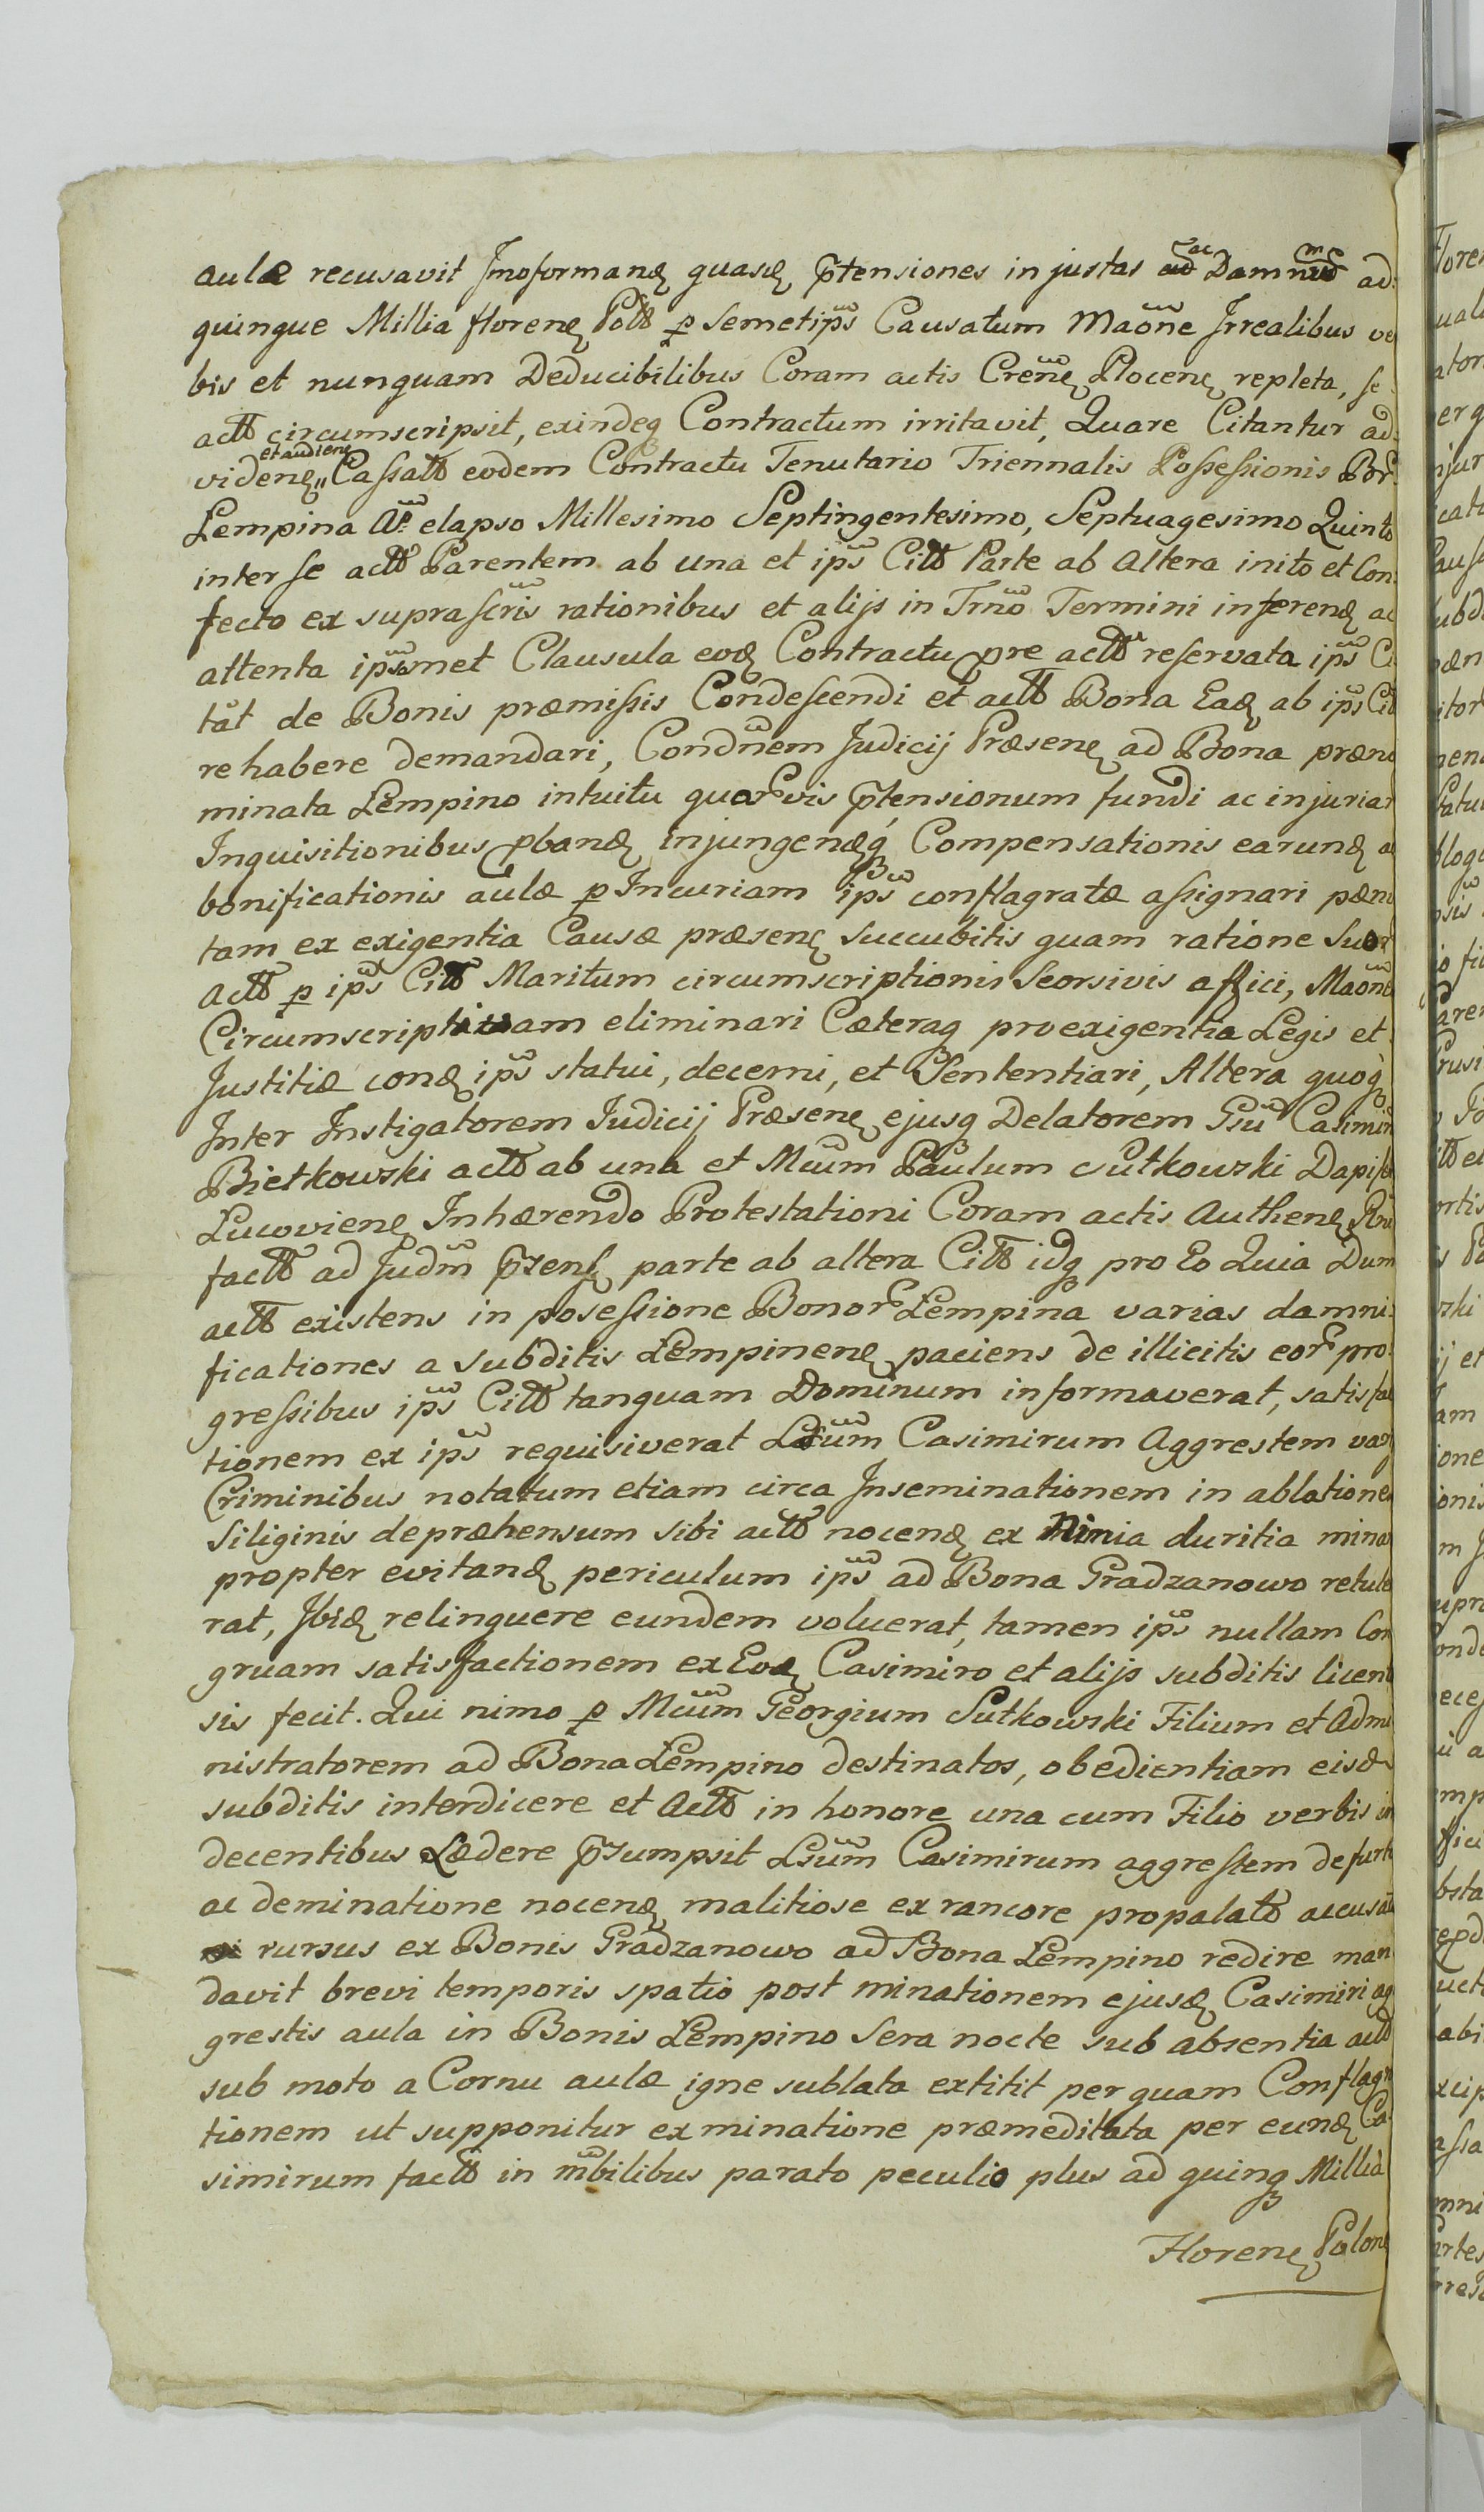 aulæ recusavit Imoformanꝫ quasꝫ p̃tensiones injustas ac Damnum ad
quinque Millia florenꝫ Poltt p Semetips̃ Causatum Maõne Irrealibus ve
bis et nunquam Deducibilibus Coram actis Creñꝫ Plocenꝫ repleta, se
actt circumscripsit, exindeq Contractum irritavit, Quare Citantur ad
videnꝫ et audienꝫ Cassatt eodem Contractu Tenutario Triennalis Possessionis Bor
Lempina Aõ elapso Millesimo Septingentesimo, Septuagesimo Quinto
inter se actt Parentem ab una et ips̃ Citt Parte ab Altera inito et Con
fecto ex suprascris̃ rationibus et alijs in Trnõ Termini inferenꝫ ac
attenta ips̃met Clausula eoꝫ Contractu pre actt reservata ips̃ Ci
tat de Bonis præmissis Condescendi et actt Bona Eaꝫ ab ips̃ Citt
rehabere demandari, Condnẽm Judicij Præsenꝫ ad Bona præno
minata Lempino intuitu quorvis p̃tensionum fundi ac injuriar
Inquisitionibus pbanꝫ injungenꝫq Compensationis earunꝫ a
bonificationis aulæ p Incuriam ips̃ conflagratæ assignari pæni
tam ex exigentia Causæ præsenꝫ succubitis quam ratione suor
Actt p ips̃ Citt Maritum circumscriptionis Seorsivis affici, Maõne
Circumscriptivam eliminari Cæteraq pro exigentia Legis et
Justitiæ conꝫ ips̃ statui, decerni, et Sententiari, Altera quoq
Inter Instigatorem Judicij Præsenꝫ ejusq Delatorem Gsũ Casimir
Bietkowski actt ab una et Mcũm Paulum Sutkowski Dapife
Lucovienꝫ Inhærendo Protestationi Coram actis Authenꝫ
factt ad Judm̃ p̃zensꝫ parte ab altera Citt idq pro Eo Quia Dum
actt existens in posessione Bonor Lempina varias damni
ficationes a subditis Lempinenꝫ paciens de illicitis eor pro
gressibus ips̃ Citt tanquam Dominum informaverat, satisfac
tionem ex ips̃ requisiverat Lsũm Casimirum Aggrestem var
Criminibus notatum etiam circa Inseminationem in ablatione
Siliginis depræhensum sibi actt nocenꝫ ex Nimia duritia mina
propter evitanꝫ periculum ips̃ ad Bona Gradzanowo retule
rat, Ibiꝫ relinquere eundem voluerat, tamen ips̃ nullam Con
gruam satisfactionem ex Eoꝫ Casimiro et alijs subditis licent
sis fecit. Qui nimo p Mcũm Georgium Sutkowski Filium et Admi
nistratorem ad Bona Lempino destinatos, obedientiam eisꝫ
subditis interdicere et Actt in honore una cum Filio verbis in
decentibus Lædere p̃zumpsit Lsũm Casimirum aggrestem de furto
ac deminatione nocenꝫ malitiose ex rancore propalatt accusatũ
rursus ex Bonis Gradzanowo ad Bona Lempino redire man
davit brevi temporis spatio post minationem ejusꝫ Casimiri ag
grestis aula in Bonis Lempino Sera nocte sub absentia actt
sub moto a Cornu aulæ igne sublata extitit per quam Conflagra
tionem ut supponitur ex minatione præmeditata per eunꝫ Ca
simirum factt in mbĩlibus parato peculio plus ad quinq Millia
Florenꝫ Polonꝫ